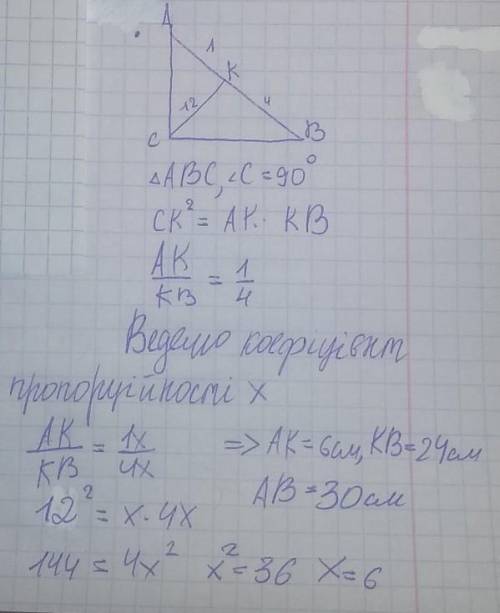 A
1
K
12
4
C
B
△ABC, ∠C = 90°
CK² = AK · KB
AK/KB = 1/4
Ведемо коефіцієнт
пропорційності x
AK/KB = 1x/4x => AK = 6см, KB = 24см
12² = x · 4x AB = 30см
144 = 4x² x² = 36 x = 6